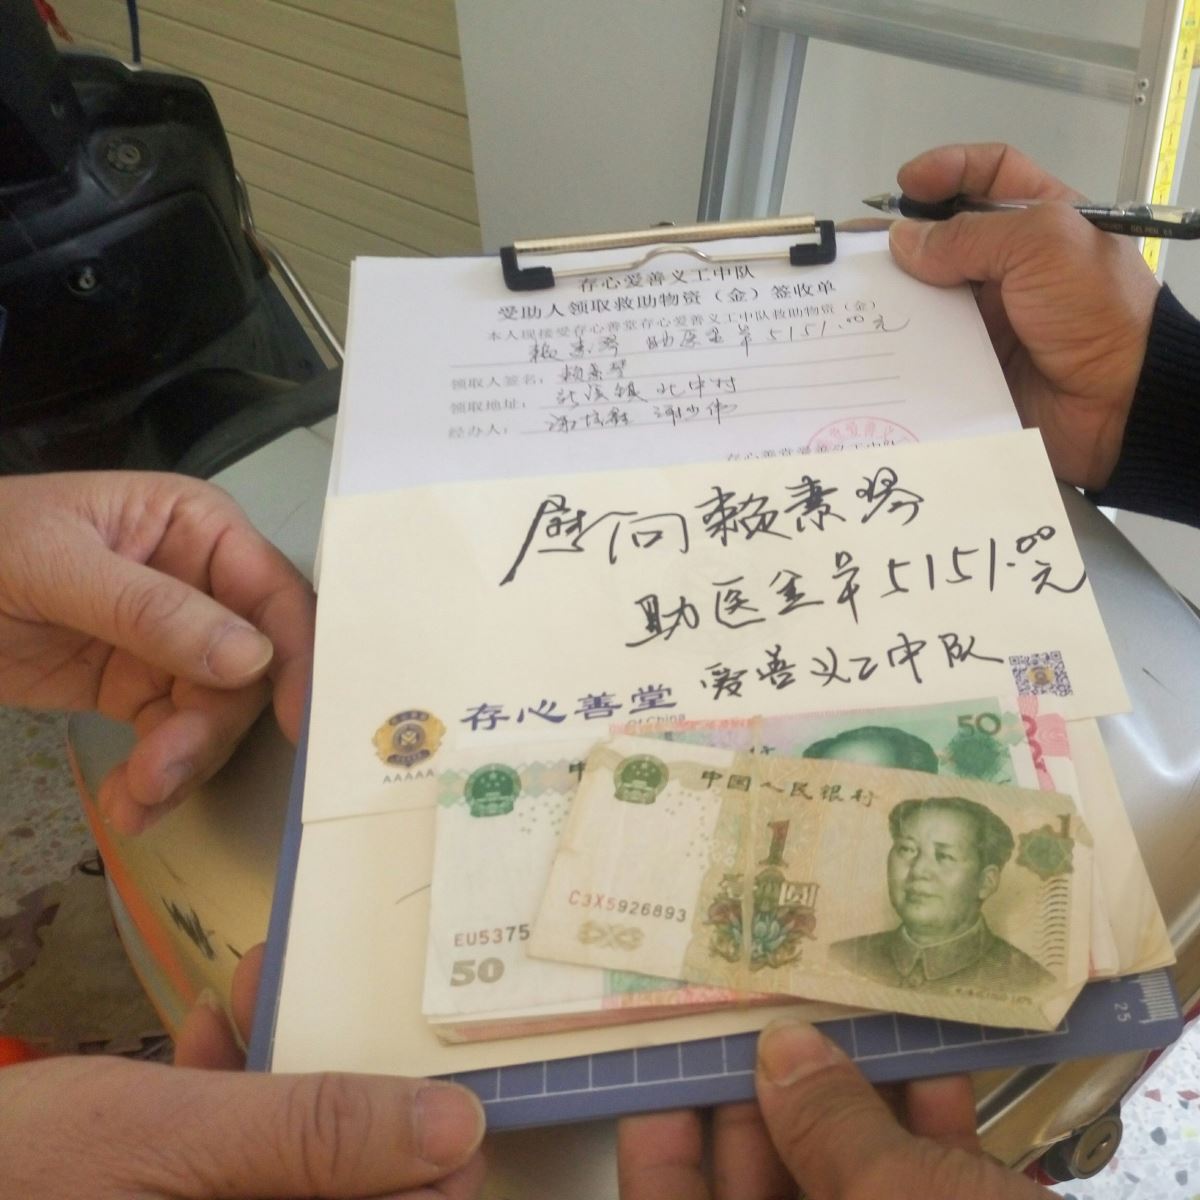 存心爱善义工中队
受助人领取救助物资（金）签收单
本人现接受存心善堂存心爱善义工中队救助物资（金）
赖素琴 助医金单5151.00元
领取人签名：赖素琴
领取地址：
经办人：
存心善堂爱善义工中队
慰问赖素琴
助医金单5151.00元
爱善义工中队
存心善堂
AAAAA
of China
50
中国人民银行
1
壹圆
C3X5926893
EU5375
50
25
GEL PEN